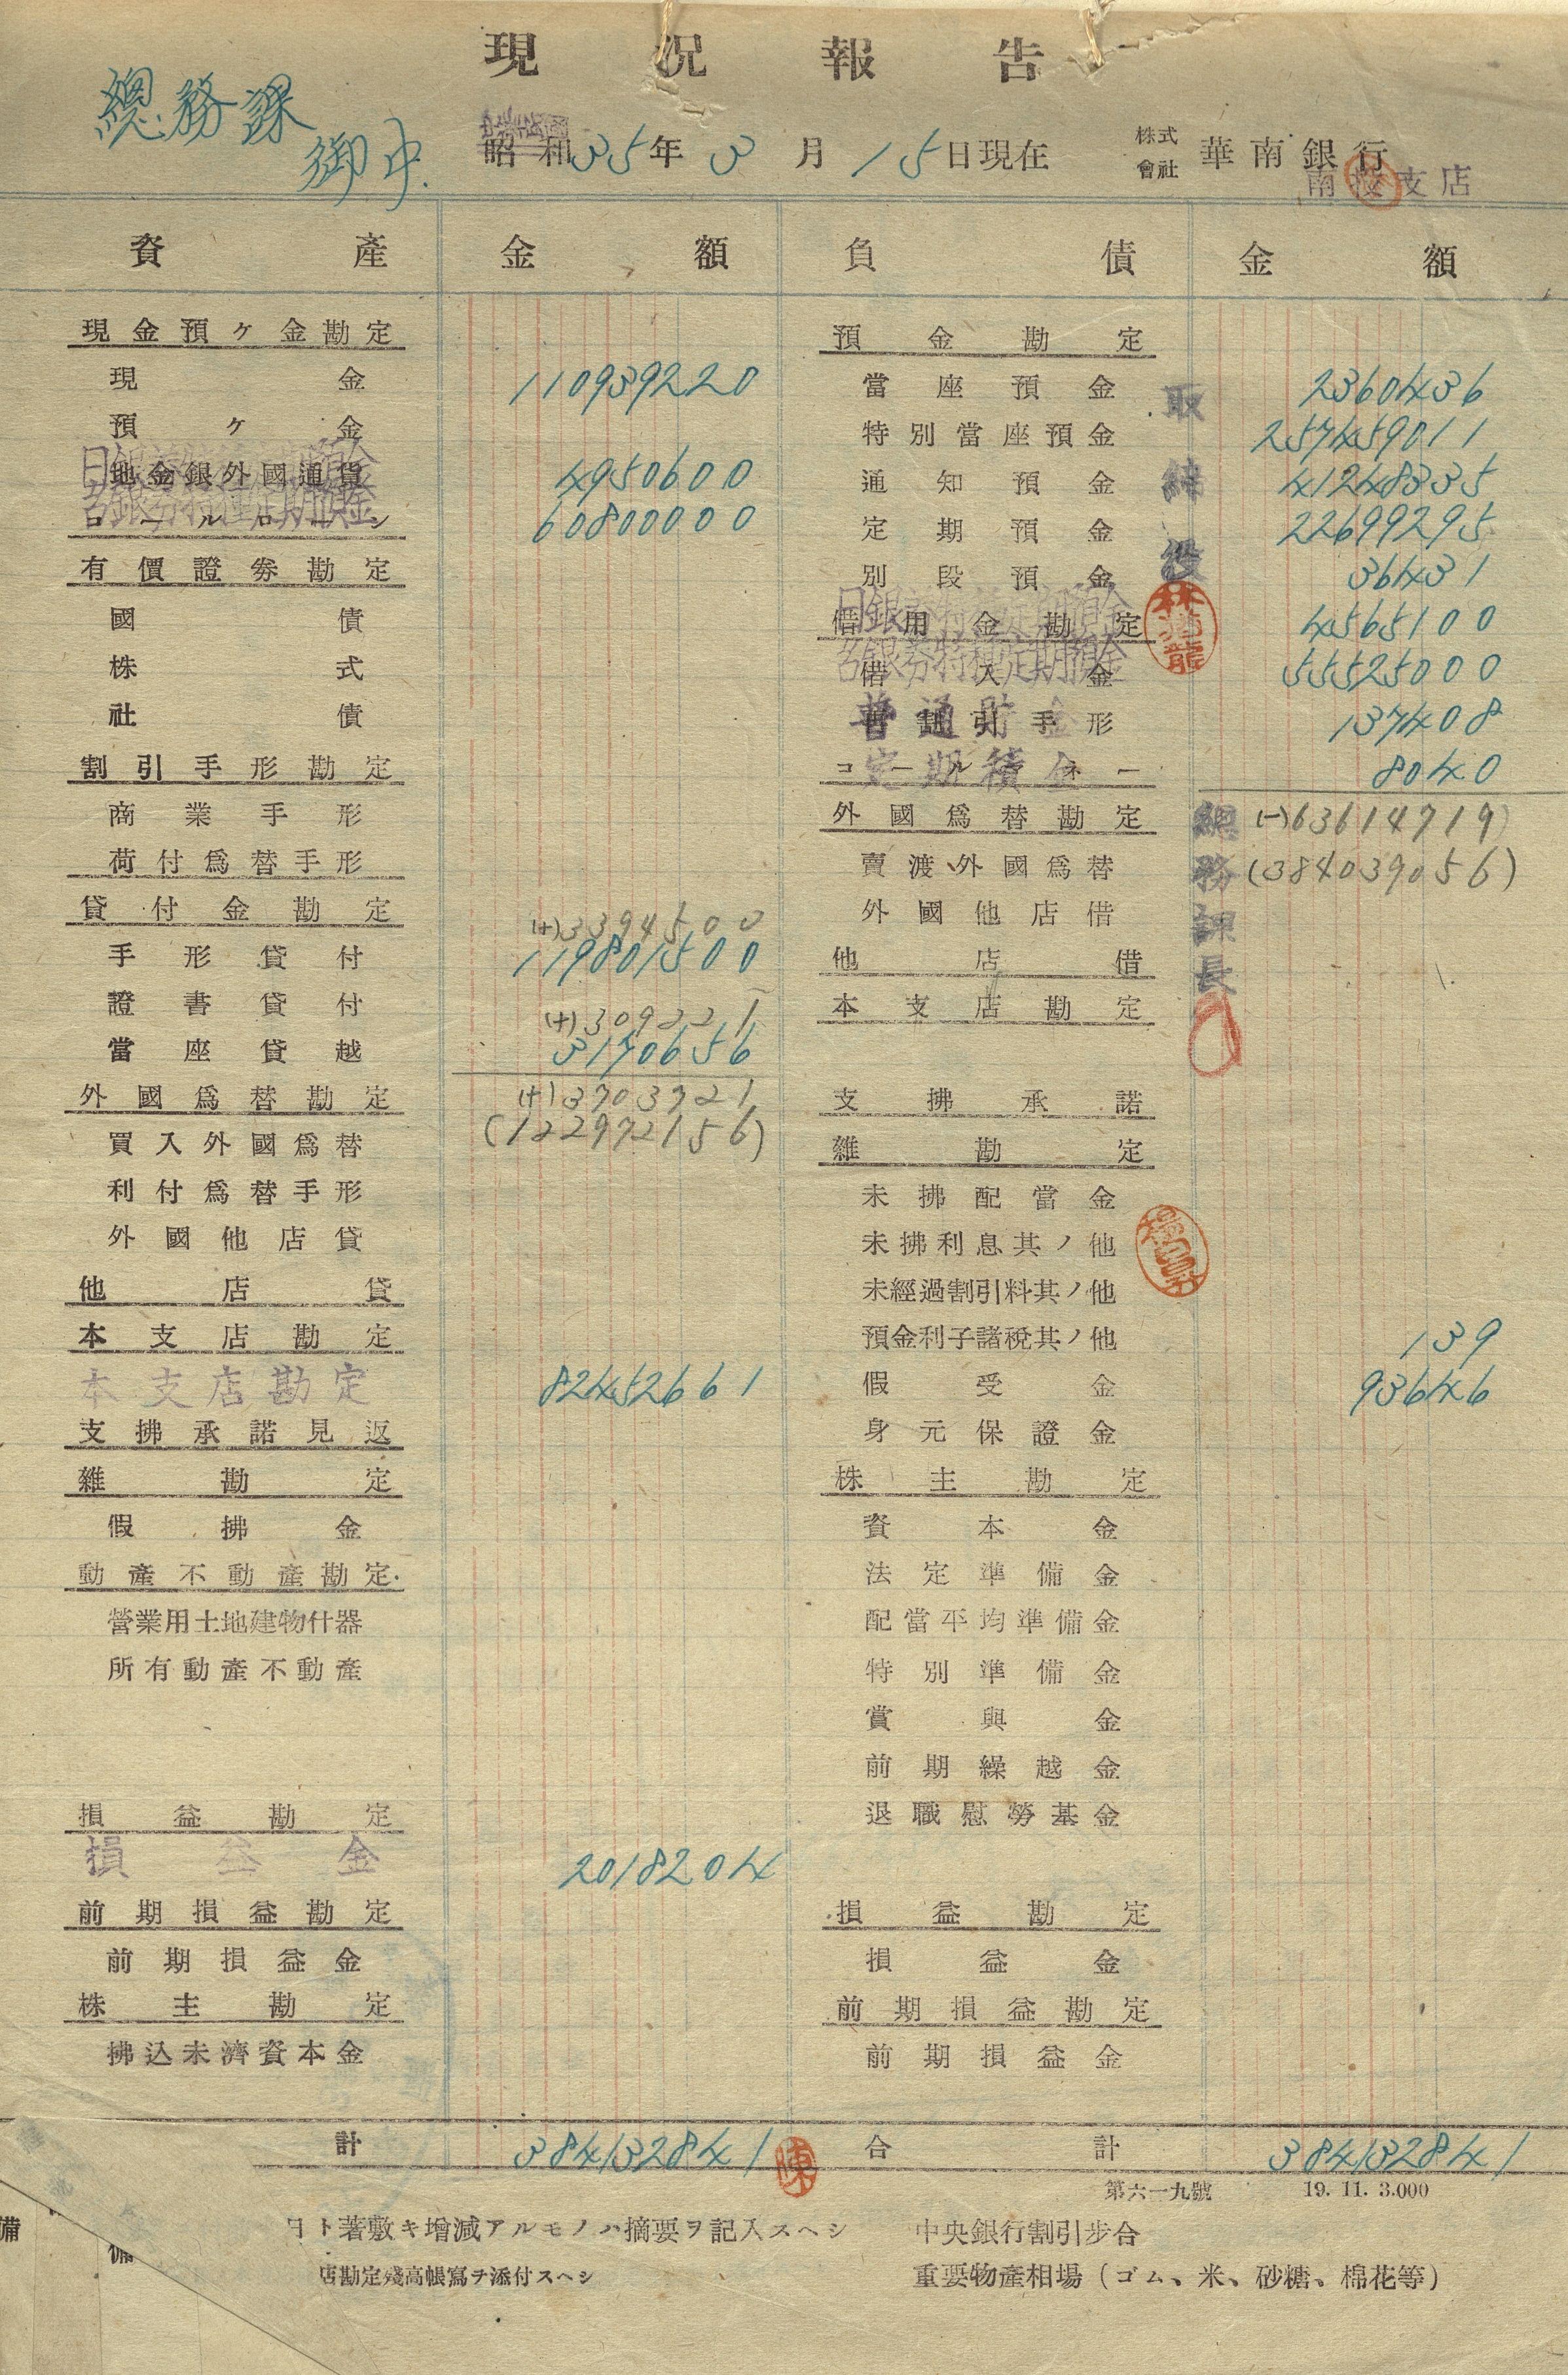 現況報告
總務課
御中.
中華民國
昭和35年3月15日現在
株式會社 華南銀行
南投支店
資產 金額 負債 金額
現金預ケ金勘定
現金 110939220
預ケ金
日銀券特種定期預金
地金銀外國通貨 4950600
台銀券特種定期預金
コールローン 60800000
有價證券勘定
國債
株式
社債
割引手形勘定
商業手形
荷付爲替手形
貸付金勘定
(+)3394500
手形貸付 119801500
證書貸付
(+)309221
當座貸越 3170656
外國爲替勘定 (+)3703721
(122972156)
買入外國爲替
利付爲替手形
外國他店貸
他店貸
本支店勘定
本支店勘定 82452661
支拂承諾見返
雜勘定
假拂金
動產不動產勘定
營業用土地建物什器
所有動產不動產
損益勘定
損益金 2018204
前期損益勘定
前期損益金
株主勘定
拂込未濟資本金
計 384132841
陳
預金勘定
當座預金 2360436
特別當座預金 257459011
通知預金 41248335
定期預金 22699295
別段預金 361431
日銀券特種定期預金
借用金勘定 4565100
台銀券特種定期預金
借入金 55525000
普通貯金
再割引手形 137408
定期積金
コールマネー 8040
外國爲替勘定 (-)63614719
賣渡外國爲替 (384039056)
外國他店借
他店借
本支店勘定
支拂承諾
雜勘定
未拂配當金
未拂利息其ノ他
未經過割引料其ノ他
預金利子諸稅其ノ他 139
假受金 93646
身元保證金
株主勘定
資本金
法定準備金
配當平均準備金
特別準備金
賞與金
前期繰越金
退職慰勞基金
損益勘定
損益金
前期損益勘定
前期損益金
合計 384132841
取締役
林湯龍
總務課長
第六一九號 19. 11. 3.000
備
備
日ト著敷キ增減アルモノハ摘要ヲ記入スヘシ
店勘定殘高帳寫ヲ添付スヘシ
中央銀行割引步合
重要物產相場(ゴム、米、砂糖、棉花等)